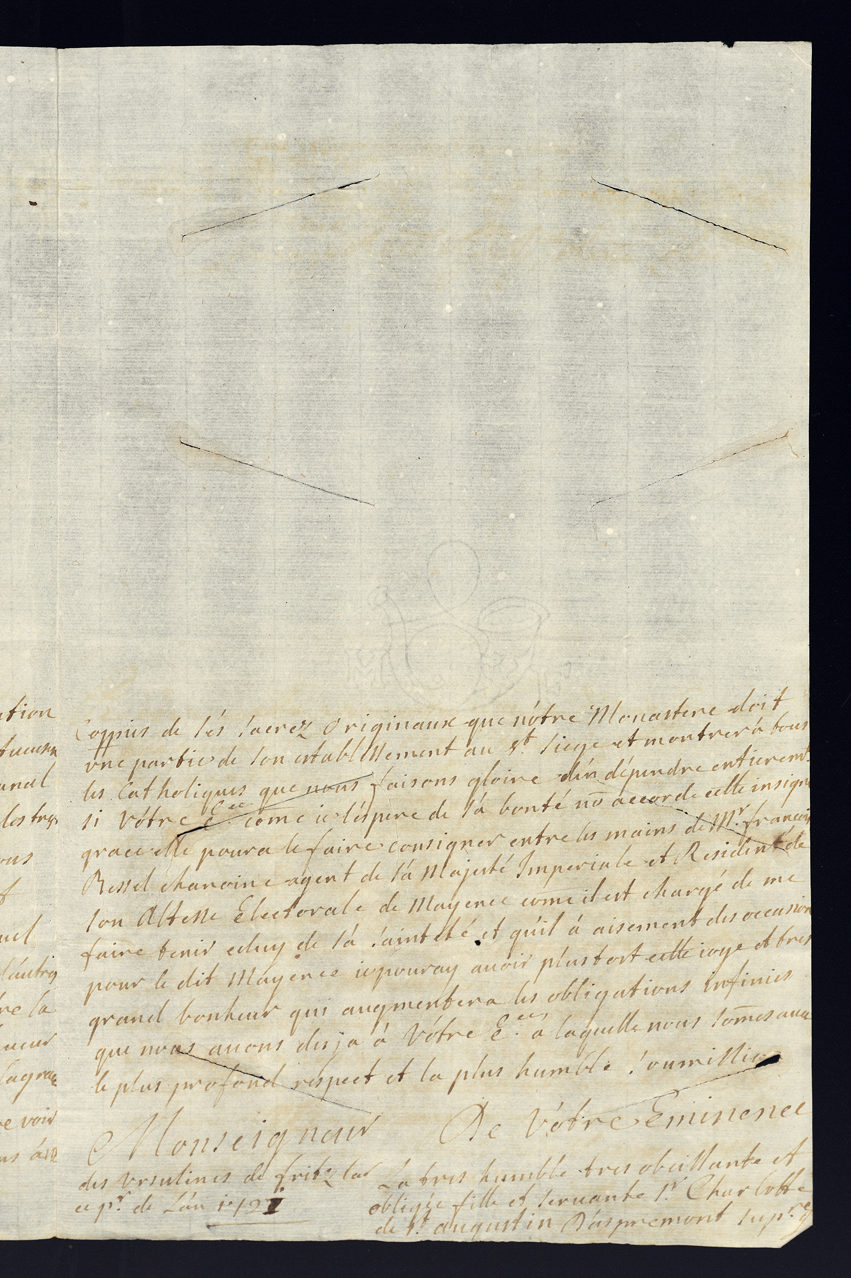 ation
uel
lautres
re la
ueur
voir
Coppies de sés sacrez originaux que nôtre Monastere doit
une partie de son establissement au St Siege et montrera tous
les Catholiques que nous faisons gloire d'én dépendre entierem
si Vôtre Ece come ie l'éspere de sa bonté no accorde cette insigne
grace elle poura le faire consigner entre les mains de Mr francois
Ressel chanoine agent de sa Majesté Imperiale et Resident de
son Altesse Electorale de Mayence come il est chargé de me
faire tenir celuy de sa sainteté et qu'il á aisement des occasion
pour le dit Mayence ie pouray avoir plustost cette ioye et tres
grand bonheur qui augmentera les obligations infinies
que nous avons desja à Vôtre Ece à laquelle nous somes avec
le plus profond respect et la plus humble soumission
Monseigneur De Vôtre Eminence
des Ursulines de fritzlar
ce pr de l'án 1721
La tres humble tres obeissante et
obligée fille et servante Sr Charlotte
de St augustin D'aspremont supre